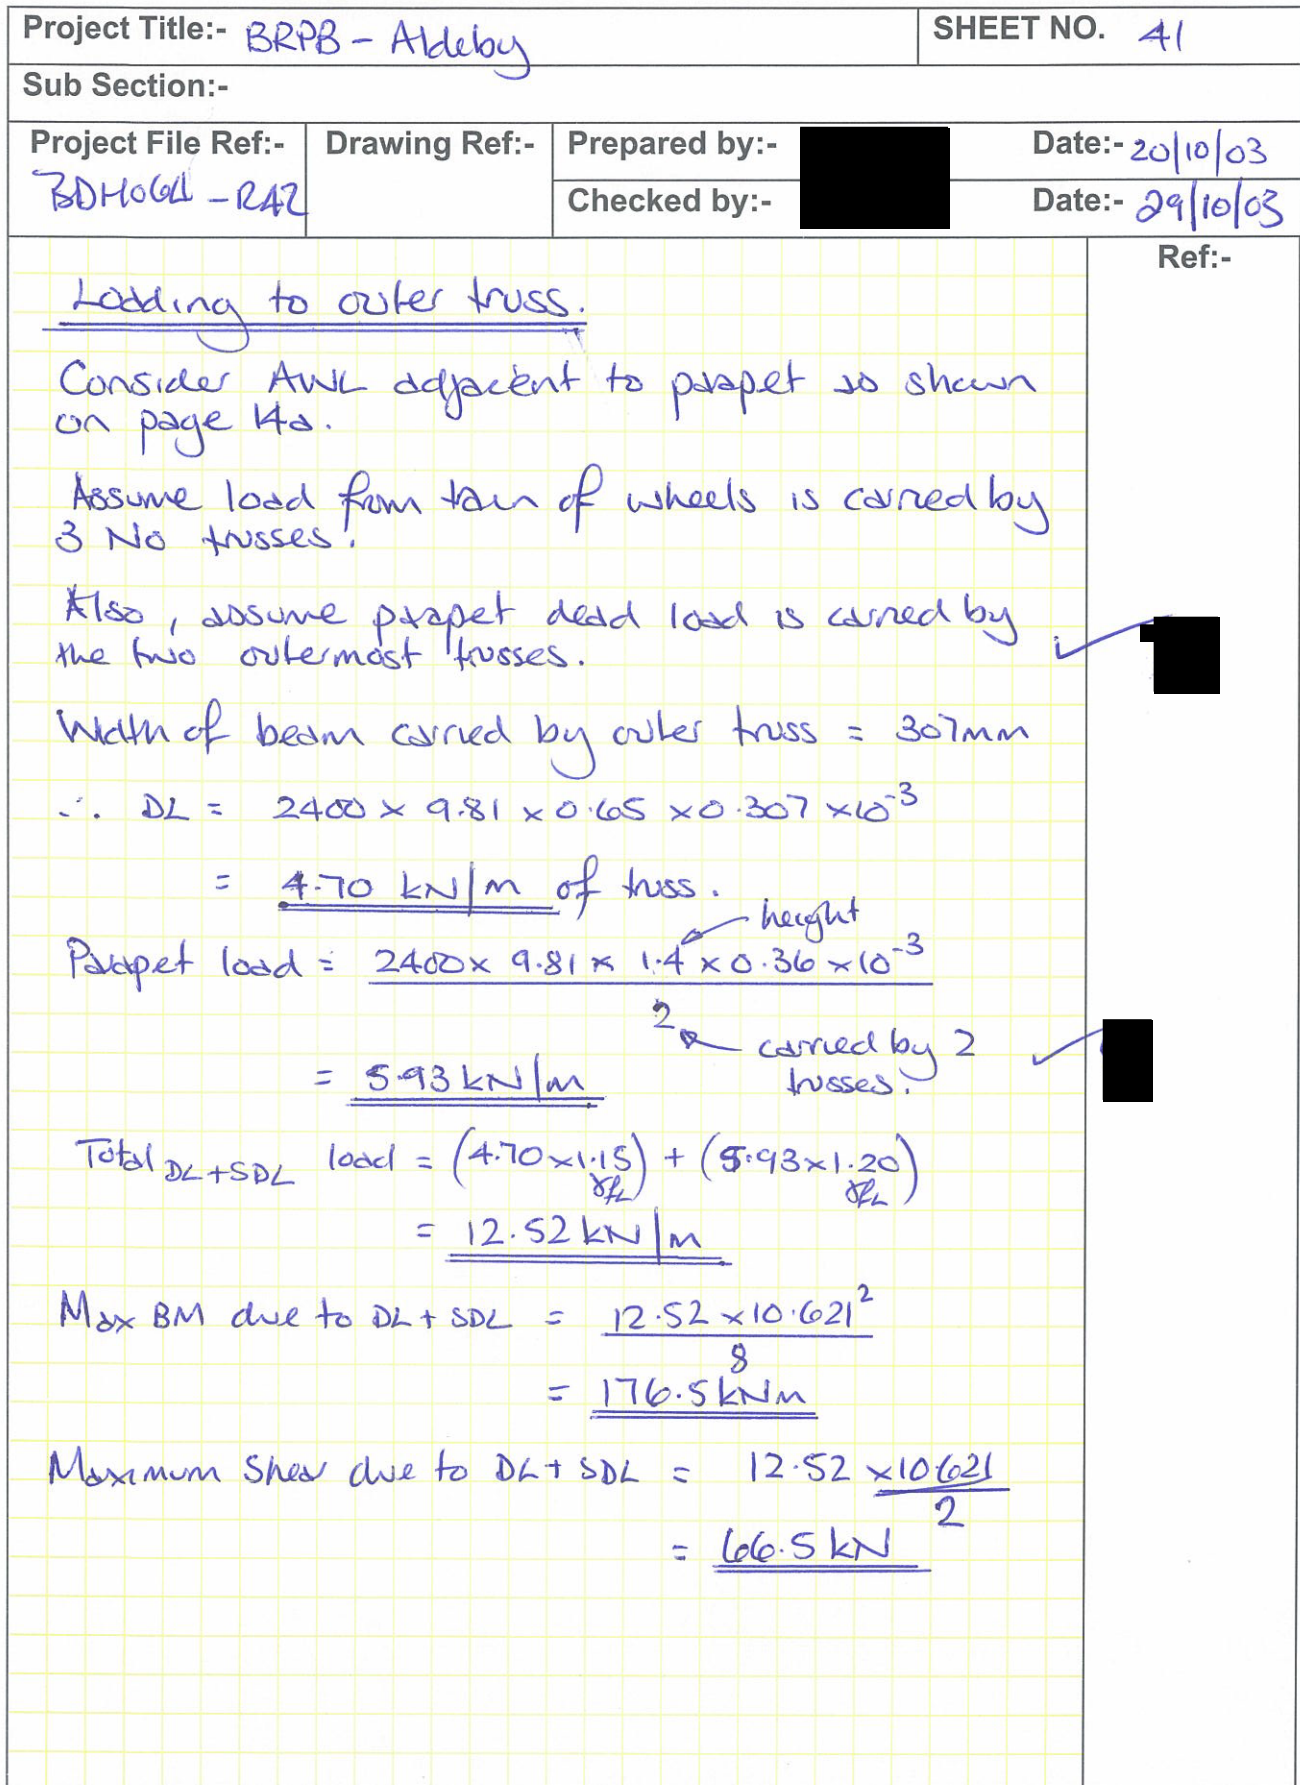 Project Title:- BRPB - Aldeby SHEET NO. 41
Sub Section:-
Project File Ref:- Drawing Ref:- Prepared by:- Date:- 20/10/03
BDH064 - RAZ Checked by:- Date:- 29/10/03
Ref:-
Loading to outer truss.
Consider AWL adjacent to parapet as shown
on page 14a.
Assume load from train of wheels is carried by
3 No trusses.
Also, assume parapet dead load is carried by
the two outermost trusses.
Width of beam carried by outer truss = 307mm
∴ DL = 2400 × 9.81 × 0.65 × 0.307 × 10⁻³
= 4.70 kN/m of truss.
height
Parapet load = 2400 × 9.81 × 1.4 × 0.36 × 10⁻³
2
carried by 2
trusses.
= 5.93 kN/m
Total DL+SDL load = (4.70 × 1.15) + (5.93 × 1.20)
γfL γfL
= 12.52 kN/m
Max BM due to DL + SDL = 12.52 × 10.621²
8
= 176.5 kNm
Maximum Shear due to DL + SDL = 12.52 × 10.621
2
= 66.5 kN